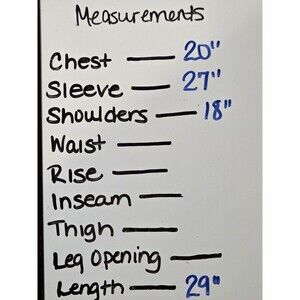 Measurements
Chest — 20"
Sleeve — 27"
Shoulders — 18"
Waist —
Rise —
Inseam —
Thigh —
Leg Opening —
Length — 29"